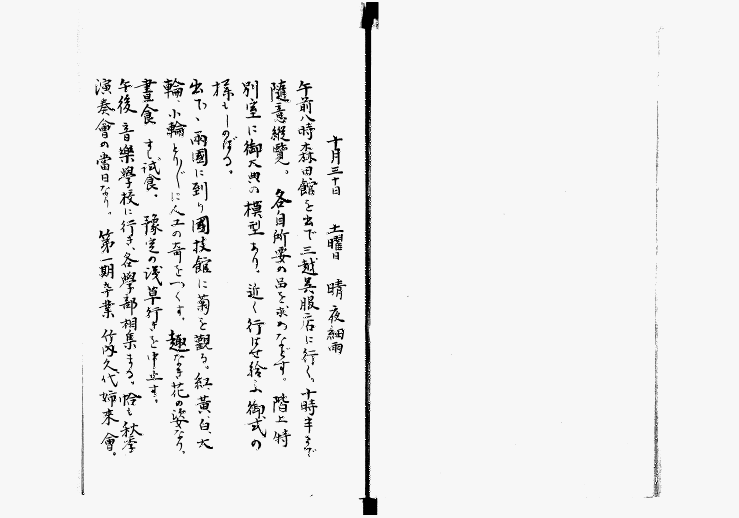 十月三十日　土曜日　晴　夜細雨
午前八時森田館を出で三越呉服店に行く。十時半まで
隨意縦覧。各自所要の品を求めなどす。階上特
別室に御大典の模型あり。近く行はせ給ふ御式の
様もしのばる。
出でゝ兩國に到り國技館に菊を觀る。紅、黄、白、大
輪、小輪とり〴〵に人工の奇をつくす。趣なき花の姿なり。
晝食　すし試食。豫定の浅草行きを中止す。
午後音樂學校に行き、各學部相集まる。恰も秋季
演奏會の當日なり。第一期卒業竹内久代姉来會。